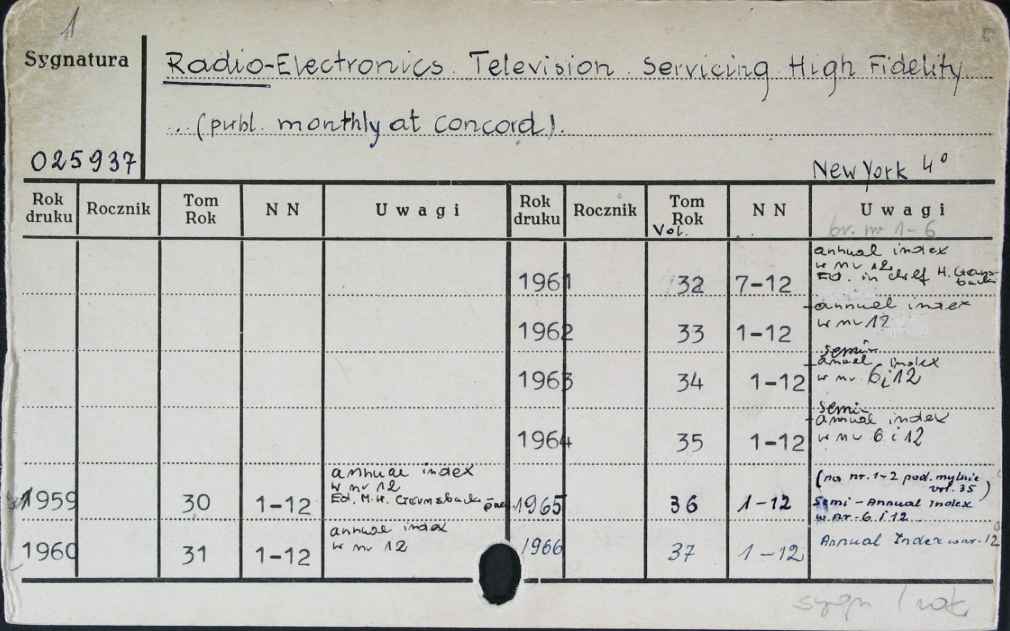 1
Sygnatura
Radio-Electronics. Television. Servicing High Fidelity
...(publ. monthly at Concord).
025937
New York 4°
Rok druku Rocznik Tom Rok N N Uwagi Rok druku Rocznik Tom Rok Vol. N N Uwagi
br. nr 1-6
1961 32 7-12 annual index
w nr 12
Ed. in chief H. Gernsback
1962 33 1-12 annual index
w nr 12
1963 34 1-12 semi-
annual index
w nr. 6 i 12
1964 35 1-12 semi-
annual index
w nr 6 i 12
1959 30 1-12 annual index
w nr 12
Ed. M.H. Gernsback
1965 36 1-12 (na nr. 1-2 pod. mylnie
vol. 35)
Semi-Annual Index
w nr. 6 i 12
1960 31 1-12 annual index
w nr 12
1966 37 1-12 Annual Index w nr. 12
sygn